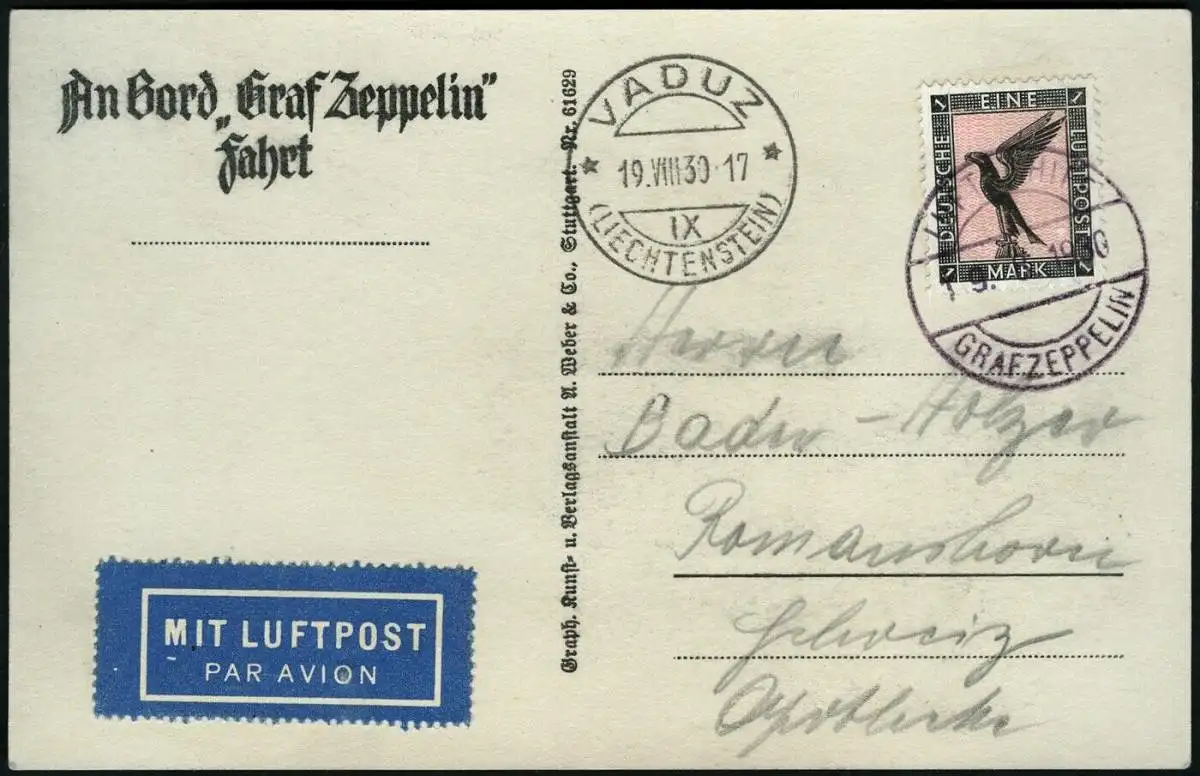 An Bord „Graf Zeppelin"
Fahrt
Graph. Kunst- u. Verlagsanstalt A. Weber & Co., Stuttgart. Nr. 61629
VADUZ
19.VIII 30-17
IX
(LIECHTENSTEIN)
1 EINE 1
DEUTSCHE
LUFTPOST
1 MARK 1
GRAF ZEPPELIN
Herrn
Bader-Holzer
Romanshorn
Schweiz
Apotheke
MIT LUFTPOST
PAR AVION